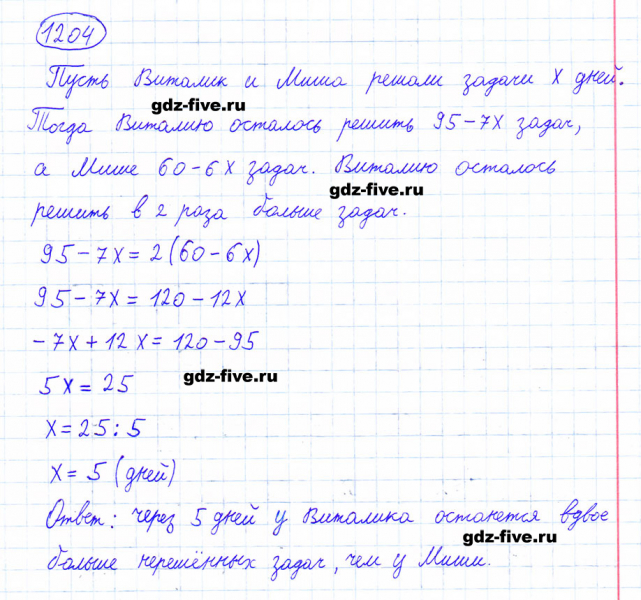 1204
Пусть Виталик и Миша решали задачи х дней.
gdz-five.ru
Тогда Виталию осталось решить 95-7х задач,
а Мише 60-6х задач. Виталию осталось
gdz-five.ru
решить в 2 раза больше задач.
95-7х=2(60-6х)
95-7х=120-12х
-7х+12х=120-95
gdz-five.ru
5х=25
х=25:5
х=5 (дней)
Ответ: через 5 дней у Виталика останется вдвое
gdz-five.ru
больше нерешённых задач, чем у Миши.